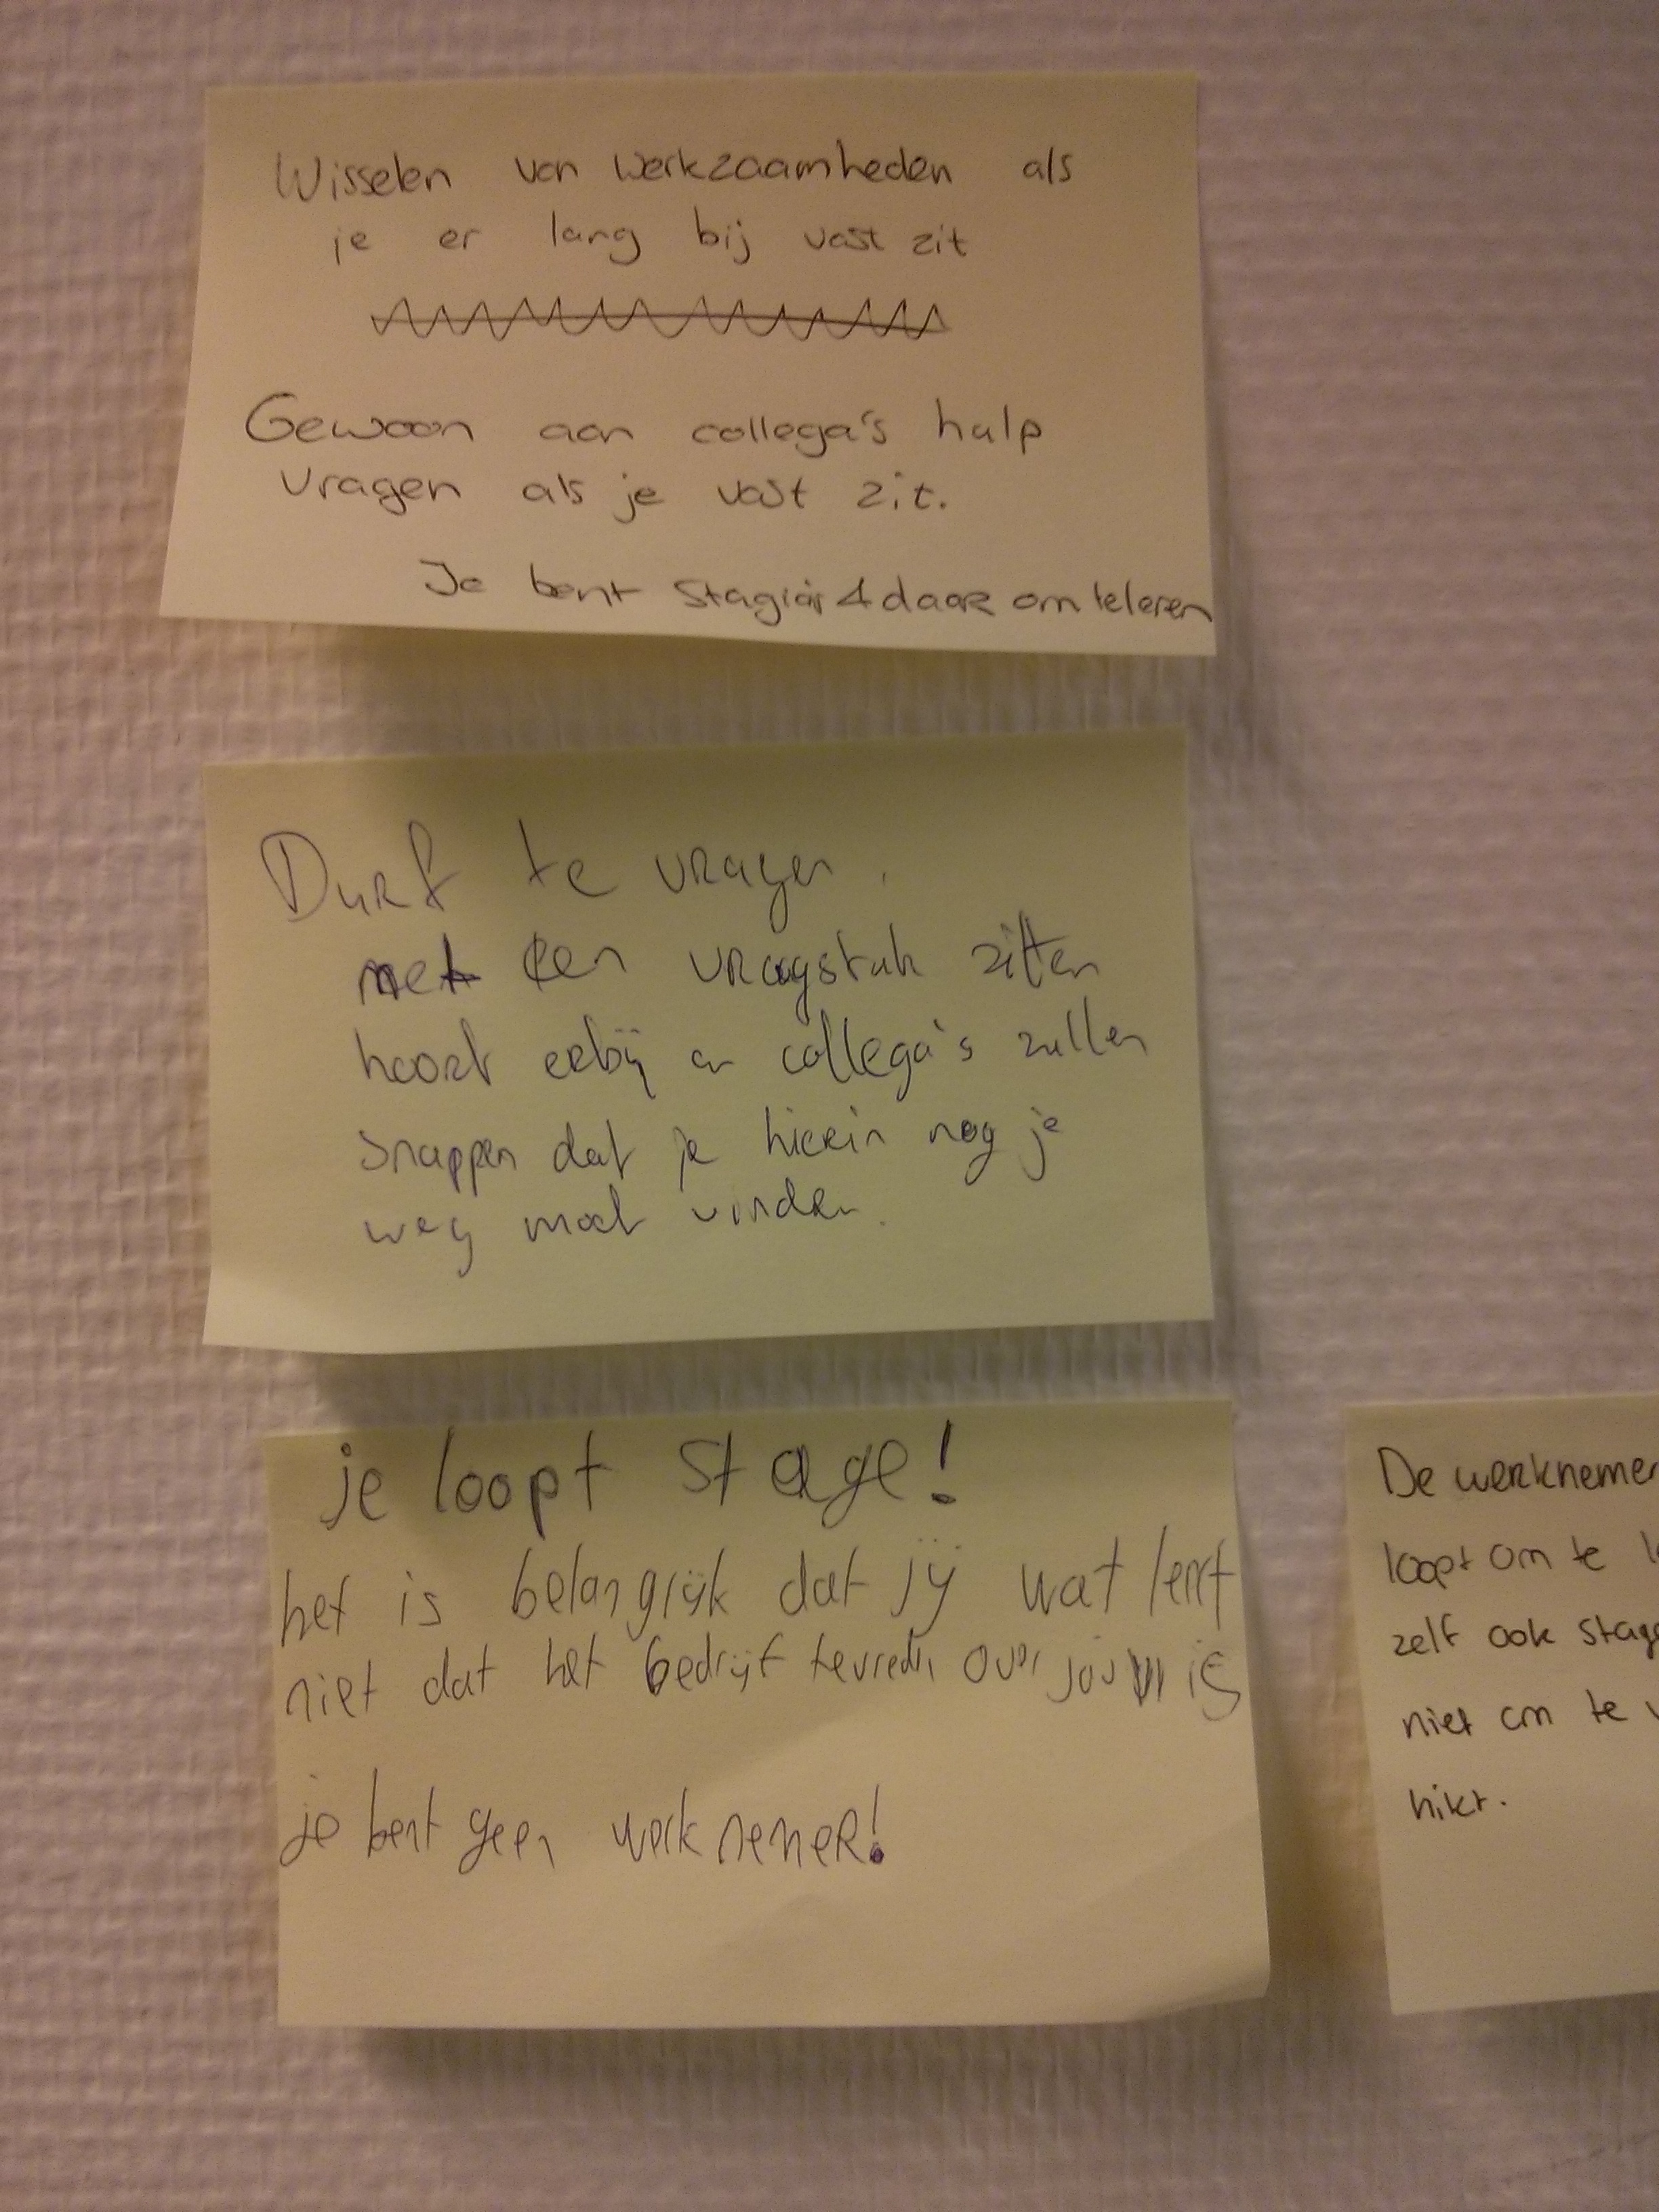 Wisselen van werkzaamheden als
je er lang bij vast zit
Gewoon aan collega's hulp
vragen als je vast zit.
Je bent stagiair & daar om te leren
Durf te vragen.
met een vraagstuk zitten
hoort erbij en collega's zullen
snappen dat je hierin nog je
weg moet vinden.
je loopt stage!
het is belangrijk dat jij wat leert
niet dat het bedrijf tevreden over jouw is
je bent geen werknemer!
De werknemer
loopt om te
zelf ook stag
niet om te
hikt.